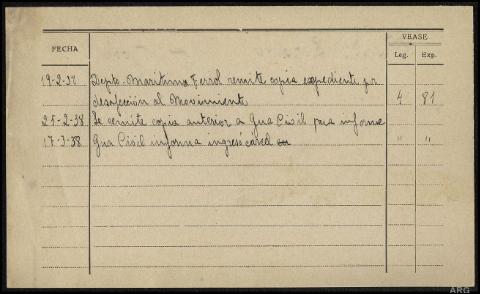 FECHA
VEASE
Leg. Exp.
19-2-38 Depto. Maritimo Ferrol remite copia expediente pr
desafección al Movimiento 4 81
25-2-38 Se remite copia anterior a Gua Civil para informe
17-3-38 Gua Civil informa ingresó carcel " "
ARG